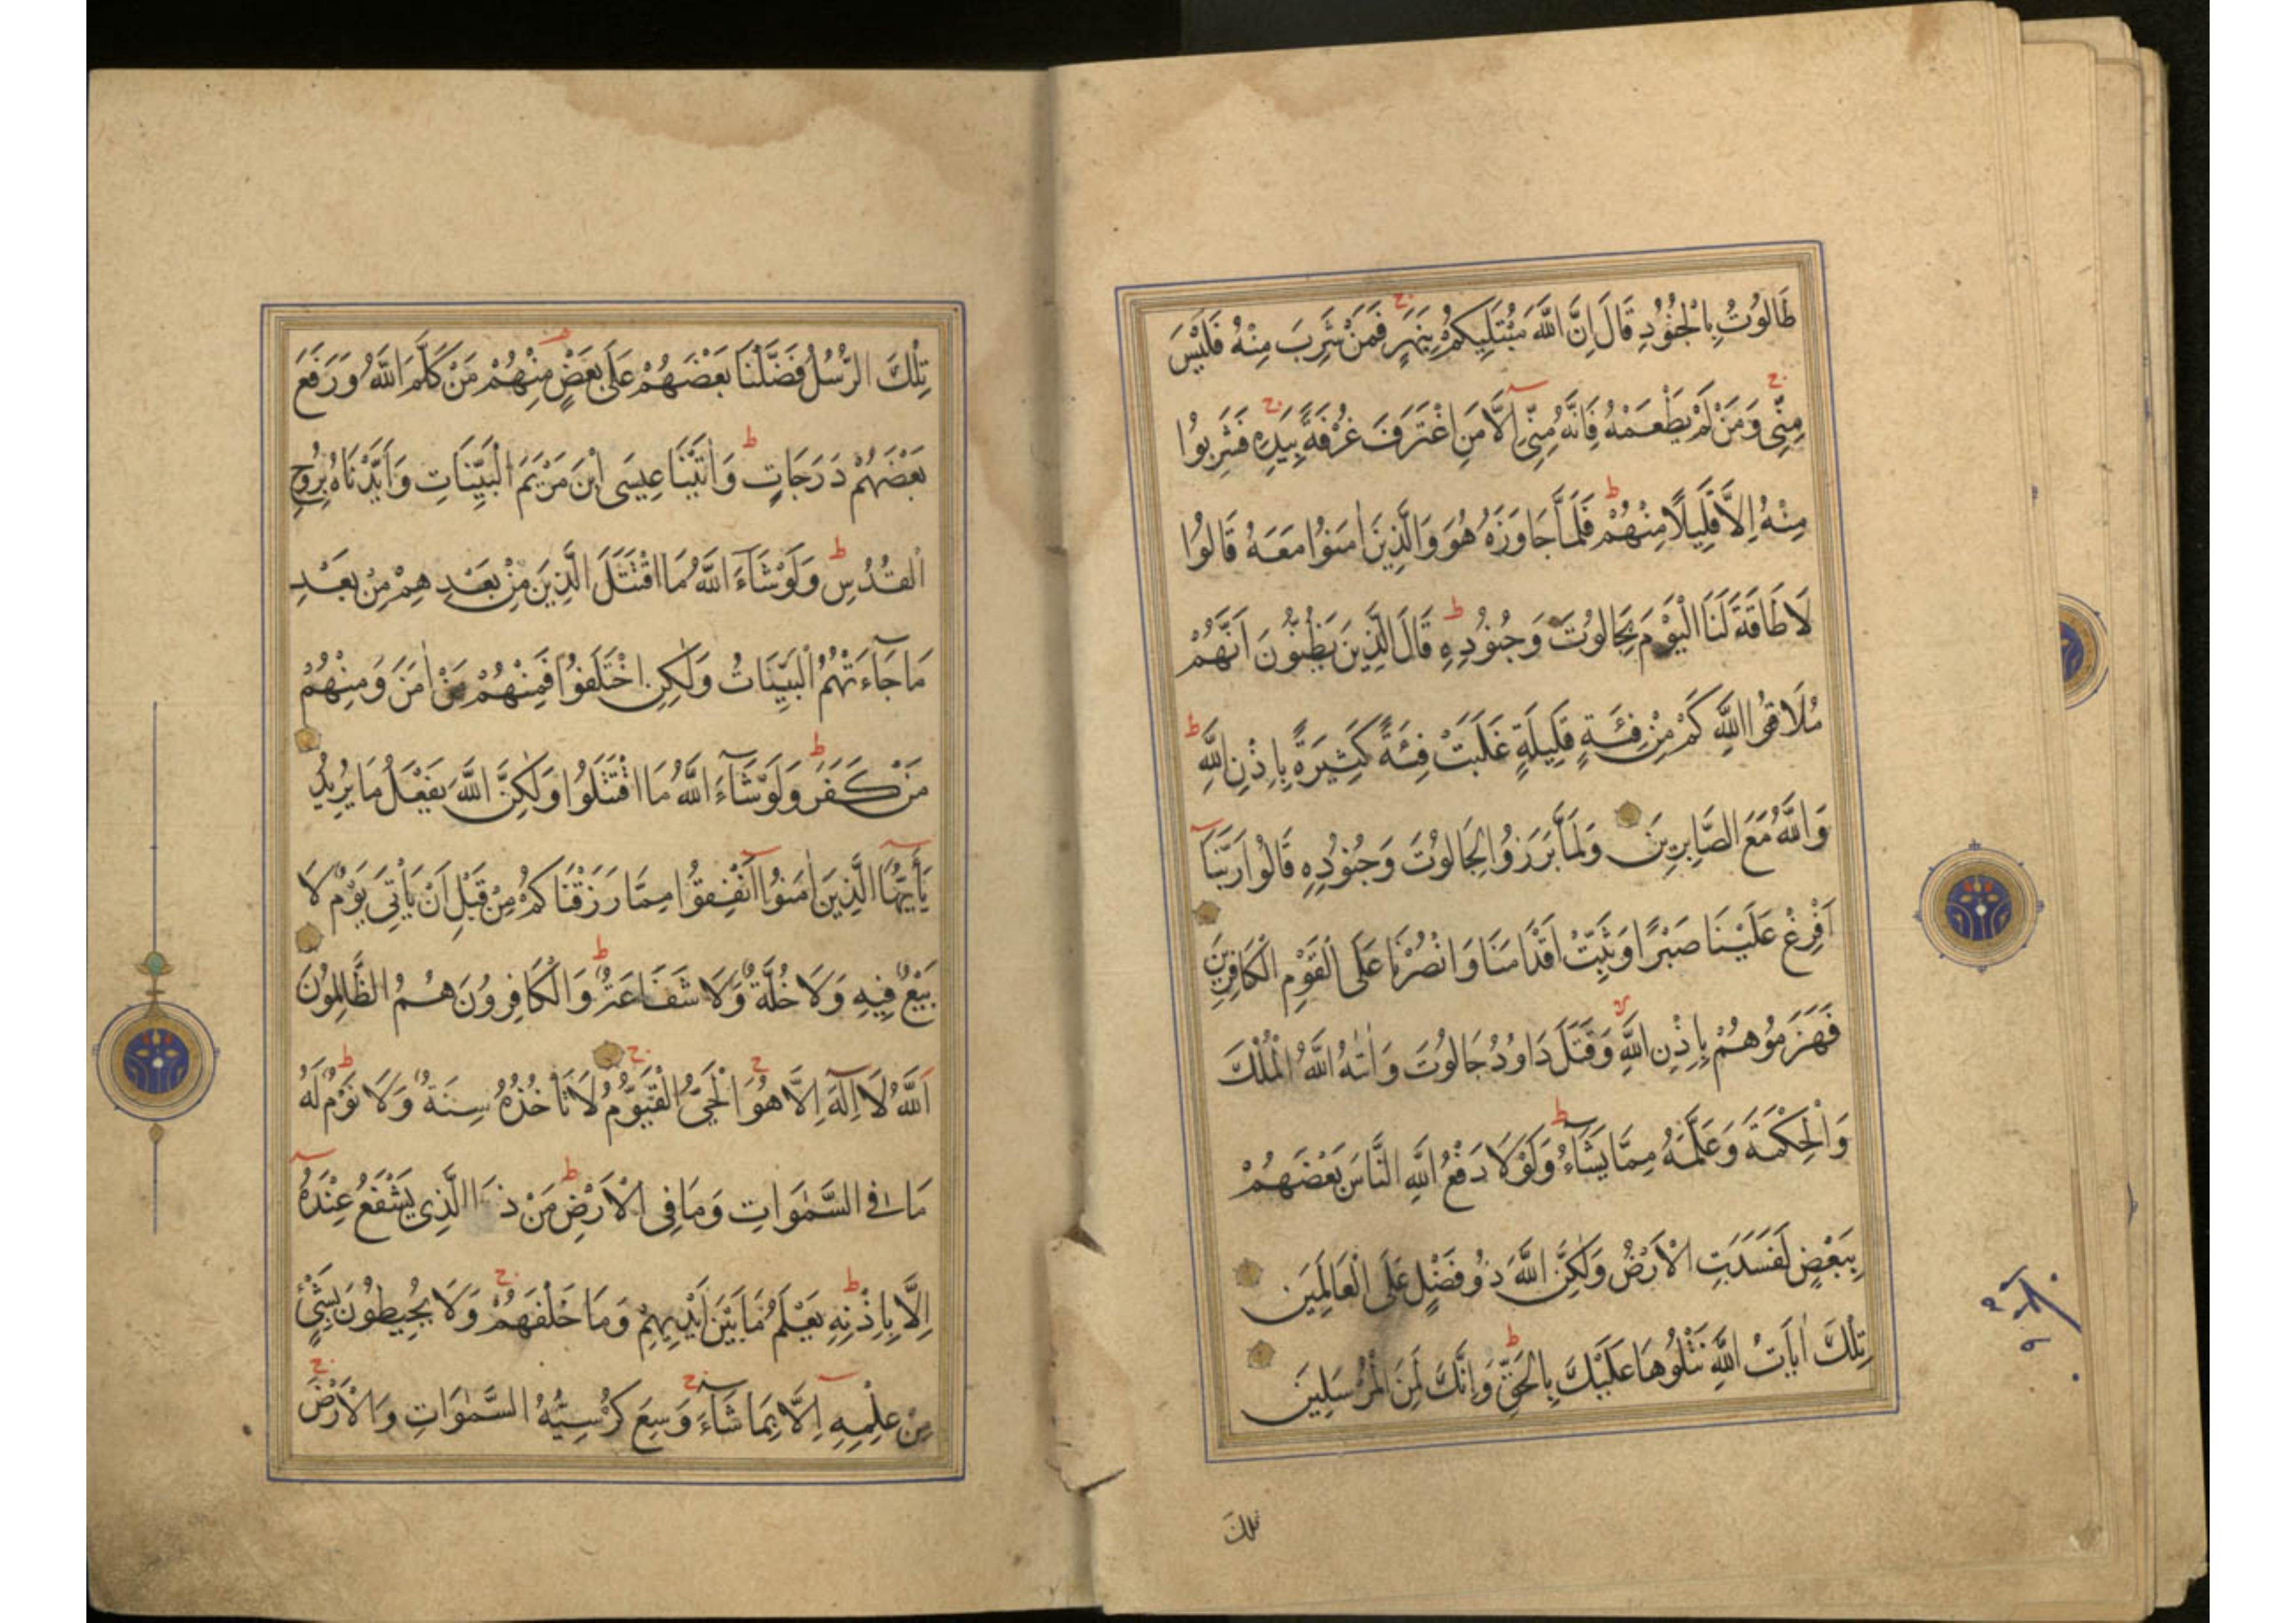 طَالُوتُ بِالْجُنُودِ قَالَ اِنَّ اللّٰهَ مُبْتَلِيكُمْ بِنَهَرٍ فَمَنْ شَرِبَ مِنْهُ فَلَيْسَ
مِنِّي وَمَنْ لَمْ يَطْعَمْهُ فَاِنَّهُ مِنِّي اِلَّا مَنِ اغْتَرَفَ غُرْفَةً بِيَدِهِ فَشَرِبُوا
مِنْهُ اِلَّا قَلِيلًا مِنْهُمْ فَلَمَّا جَاوَزَهُ هُوَ وَالَّذِينَ اٰمَنُوا مَعَهُ قَالُوا
لَا طَاقَةَ لَنَا الْيَوْمَ بِجَالُوتَ وَجُنُودِهِ قَالَ الَّذِينَ يَظُنُّونَ اَنَّهُمْ
مُلَاقُوا اللّٰهِ كَمْ مِنْ فِئَةٍ قَلِيلَةٍ غَلَبَتْ فِئَةً كَثِيرَةً بِاِذْنِ اللّٰهِ
وَاللّٰهُ مَعَ الصَّابِرِينَ وَلَمَّا بَرَزُوا لِجَالُوتَ وَجُنُودِهِ قَالُوا رَبَّنَا
اَفْرِغْ عَلَيْنَا صَبْرًا وَثَبِّتْ اَقْدَامَنَا وَانْصُرْنَا عَلَى الْقَوْمِ الْكَافِرِينَ
فَهَزَمُوهُمْ بِاِذْنِ اللّٰهِ وَقَتَلَ دَاوُدُ جَالُوتَ وَاٰتٰهُ اللّٰهُ الْمُلْكَ
وَالْحِكْمَةَ وَعَلَّمَهُ مِمَّا يَشَآءُ وَلَوْلَا دَفْعُ اللّٰهِ النَّاسَ بَعْضَهُمْ
بِبَعْضٍ لَفَسَدَتِ الْاَرْضُ وَلٰكِنَّ اللّٰهَ ذُو فَضْلٍ عَلَى الْعَالَمِينَ
تِلْكَ اٰيَاتُ اللّٰهِ نَتْلُوهَا عَلَيْكَ بِالْحَقِّ وَاِنَّكَ لَمِنَ الْمُرْسَلِينَ
تلك
تِلْكَ الرُّسُلُ فَضَّلْنَا بَعْضَهُمْ عَلَى بَعْضٍ مِنْهُمْ مَنْ كَلَّمَ اللّٰهُ وَرَفَعَ
بَعْضَهُمْ دَرَجَاتٍ وَاٰتَيْنَا عِيسَى ابْنَ مَرْيَمَ الْبَيِّنَاتِ وَاَيَّدْنَاهُ بِرُوحِ
الْقُدُسِ وَلَوْ شَآءَ اللّٰهُ مَا اقْتَتَلَ الَّذِينَ مِنْ بَعْدِهِمْ مِنْ بَعْدِ
مَا جَآءَتْهُمُ الْبَيِّنَاتُ وَلٰكِنِ اخْتَلَفُوا فَمِنْهُمْ مَنْ اٰمَنَ وَمِنْهُمْ
مَنْ كَفَرَ وَلَوْ شَآءَ اللّٰهُ مَا اقْتَتَلُوا وَلٰكِنَّ اللّٰهَ يَفْعَلُ مَا يُرِيدُ
يَآ اَيُّهَا الَّذِينَ اٰمَنُوا اَنْفِقُوا مِمَّا رَزَقْنَاكُمْ مِنْ قَبْلِ اَنْ يَاْتِيَ يَوْمٌ لَا
بَيْعٌ فِيهِ وَلَا خُلَّةٌ وَلَا شَفَاعَةٌ وَالْكَافِرُونَ هُمُ الظَّالِمُونَ
اَللّٰهُ لَا اِلٰهَ اِلَّا هُوَ الْحَيُّ الْقَيُّومُ لَا تَاْخُذُهُ سِنَةٌ وَلَا نَوْمٌ لَهُ
مَا فِي السَّمٰوَاتِ وَمَا فِي الْاَرْضِ مَنْ ذَا الَّذِي يَشْفَعُ عِنْدَهُ
اِلَّا بِاِذْنِهِ يَعْلَمُ مَا بَيْنَ اَيْدِيهِمْ وَمَا خَلْفَهُمْ وَلَا يُحِيطُونَ بِشَيْءٍ
مِنْ عِلْمِهِ اِلَّا بِمَا شَآءَ وَسِعَ كُرْسِيُّهُ السَّمٰوَاتِ وَالْاَرْضَ